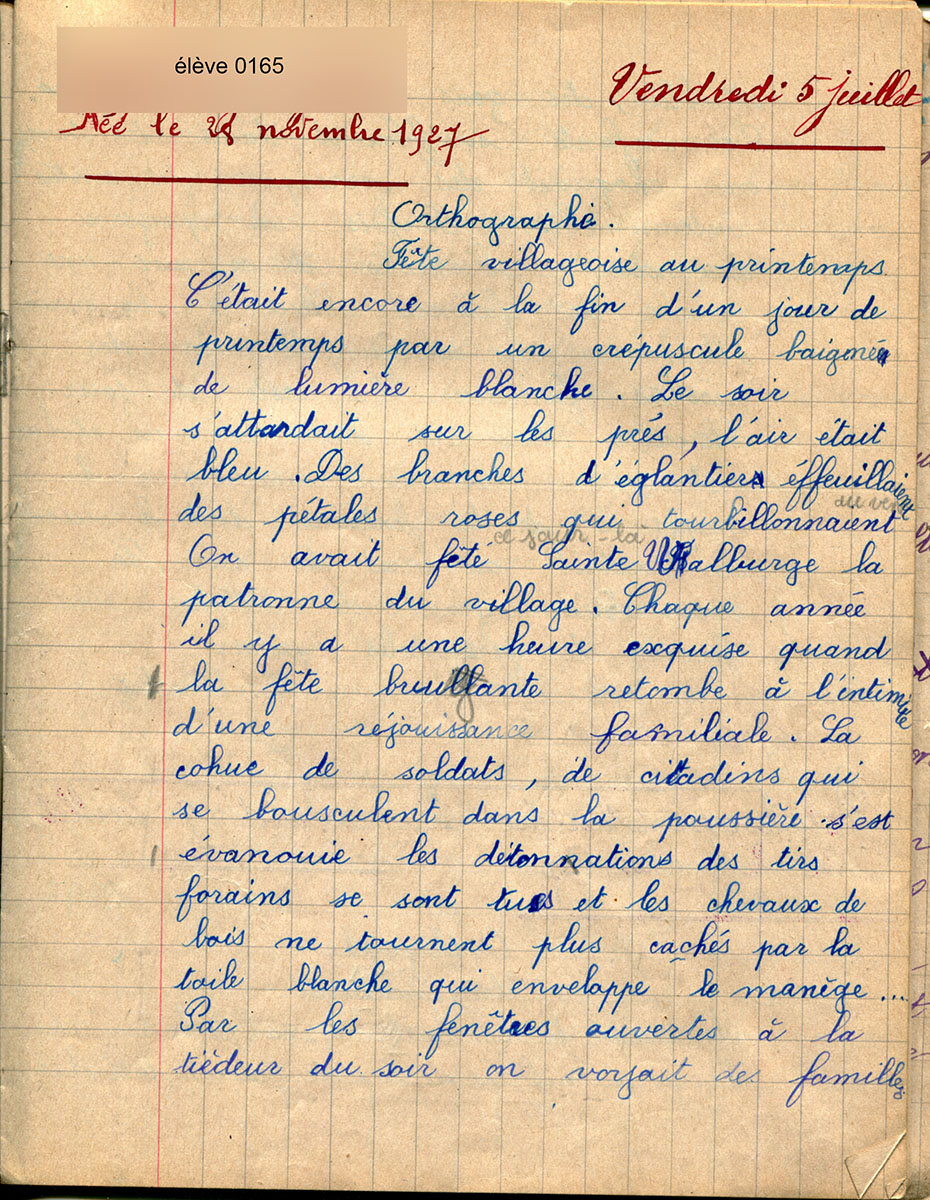 élève 0165
Vendredi 5 juillet
Née le 28 novembre 1927
Orthographe.
Fête villageoise au printemps
C'était encore à la fin d'un jour de
printemps par un crépuscule baigné
de lumière blanche. Le soir
s'attardait sur les prés, l'air était
bleu. Des branches d'églantier éffeuillaient
au vent
des pétales roses qui tourbillonnaient
ce jour-là
On avait fêté Sainte Walburge la
patronne du village. Chaque année
il y a une heure exquise quand
la fête bruillante retombe à l'intimité
d'une réjouissance familiale. La
cohue de soldats, de citadins qui
se bousculent dans la poussière s'est
évanouie les détonnations des tirs
forains se sont tues et les chevaux de
bois ne tournent plus cachés par la
toile blanche qui enveloppe le manège...
Par les fenêtres ouvertes à la
tiédeur du soir on voyait des familles